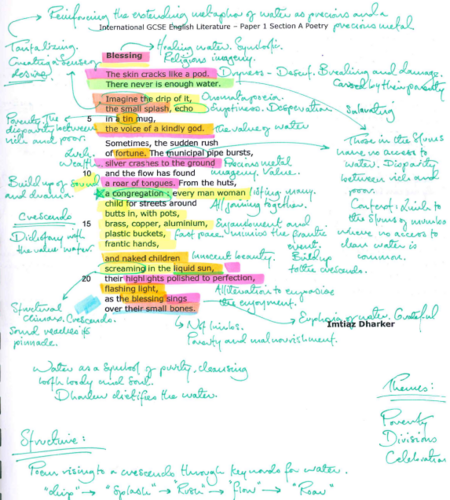 Reinforcing the extending metaphor of water as precious and a
precious metal.
International GCSE English Literature – Paper 1 Section A Poetry
Tantalizing.
Creating a sense of
desire
Healing water. Symbolic.
Religious imagery.
Blessing
The skin cracks like a pod.
There never is enough water.
Dryness - Desert. Breaking and damage.
Caused by their poverty
Imagine the drip of it,
the small splash, echo
5 in a tin mug,
the voice of a kindly god.
Onomatopoeia.
Emptiness. Desperation
Salivating
the value of water
Poverty. The
disparity between
rich and poor.
Sometimes, the sudden rush
of fortune. The municipal pipe bursts,
silver crashes to the ground
10 and the flow has found
a roar of tongues. From the huts,
a congregation : every man woman
child for streets around
butts in, with pots,
15 brass, copper, aluminium,
plastic buckets,
frantic hands,
Luck.
wealth
Precious metal
imagery. Value.
Build up of sound
and drama.
Crescendo
listing many.
All joining together.
fast pace mimics the frantic
event.
Build up
to the crescendo.
Those in the slums
have no access to
water. Disparity
between rich and
poor.
Context: Links to
the slums of Mumbai
where no access to
clean water is
common.
and naked children
screaming in the liquid sun,
20 their highlights polished to perfection,
flashing light,
as the blessing sings
over their small bones.
Innocent beauty.
Alliteration to emphasise
the enjoyment.
Structural
climax. Crescendo.
Sound reaches its
pinnacle.
Poverty and malnourishment.
Imtiaz Dharker
Water as a symbol of purity, cleansing
both body and soul.
Dharker deifies the water.
Themes:
Poverty
Divisions
Celebration
Structure:
Poem rising to a crescendo through key words for water.
"drip" → "Splash" → "Rush" → "flow" → "Roar"